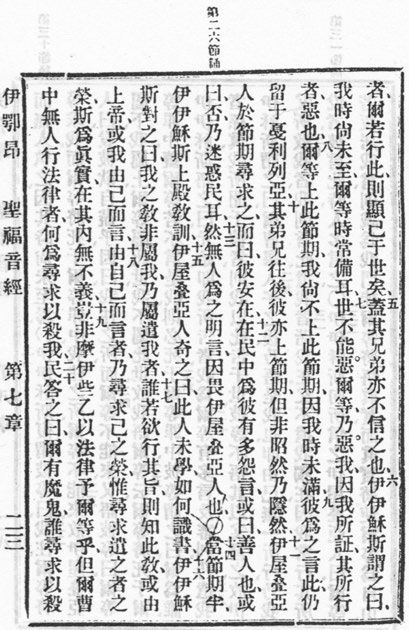 第二六節肆
者、爾若行此、則顯己于世矣、五蓋其兄弟亦不信之也、六伊伊穌斯謂之曰、
我時尙未至、爾等時常備耳、七世不能惡爾等、乃惡我、因我所証其所行
者、惡也、八爾等上此節期、我尙不上此節期、因我時未滿、九彼爲之言此、仍
留于戞利列亞、十其弟兄往後、彼亦上節期、但非昭然、乃隱然、十一伊屋叠亞
人於節期尋求之、而曰、彼安在、十二在民中爲彼有多怨言、或曰善人也、或
曰否、乃迷惑民耳、十三然無人爲之明言、因畏伊屋叠亞人也、十四當節期半、
伊伊穌斯上殿敎訓、十五伊屋叠亞人奇之曰、此人未學、如何識書、十六伊伊穌
斯對之曰、我之敎非屬我、乃屬遣我者、十七誰若欲行其旨、則知此敎或由
上帝、或我由己而言、十八由自己而言者、乃尋求己之榮、惟尋求遣之者之
榮、斯爲眞實、在其內無不義、十九豈非摩伊些乙以法律予爾等乎、但爾曹
中無人行法律者、何爲尋求以殺我、二十民答之曰、爾有魔鬼、誰尋求以殺
伊鄂昂 聖福音經 第七章 二三